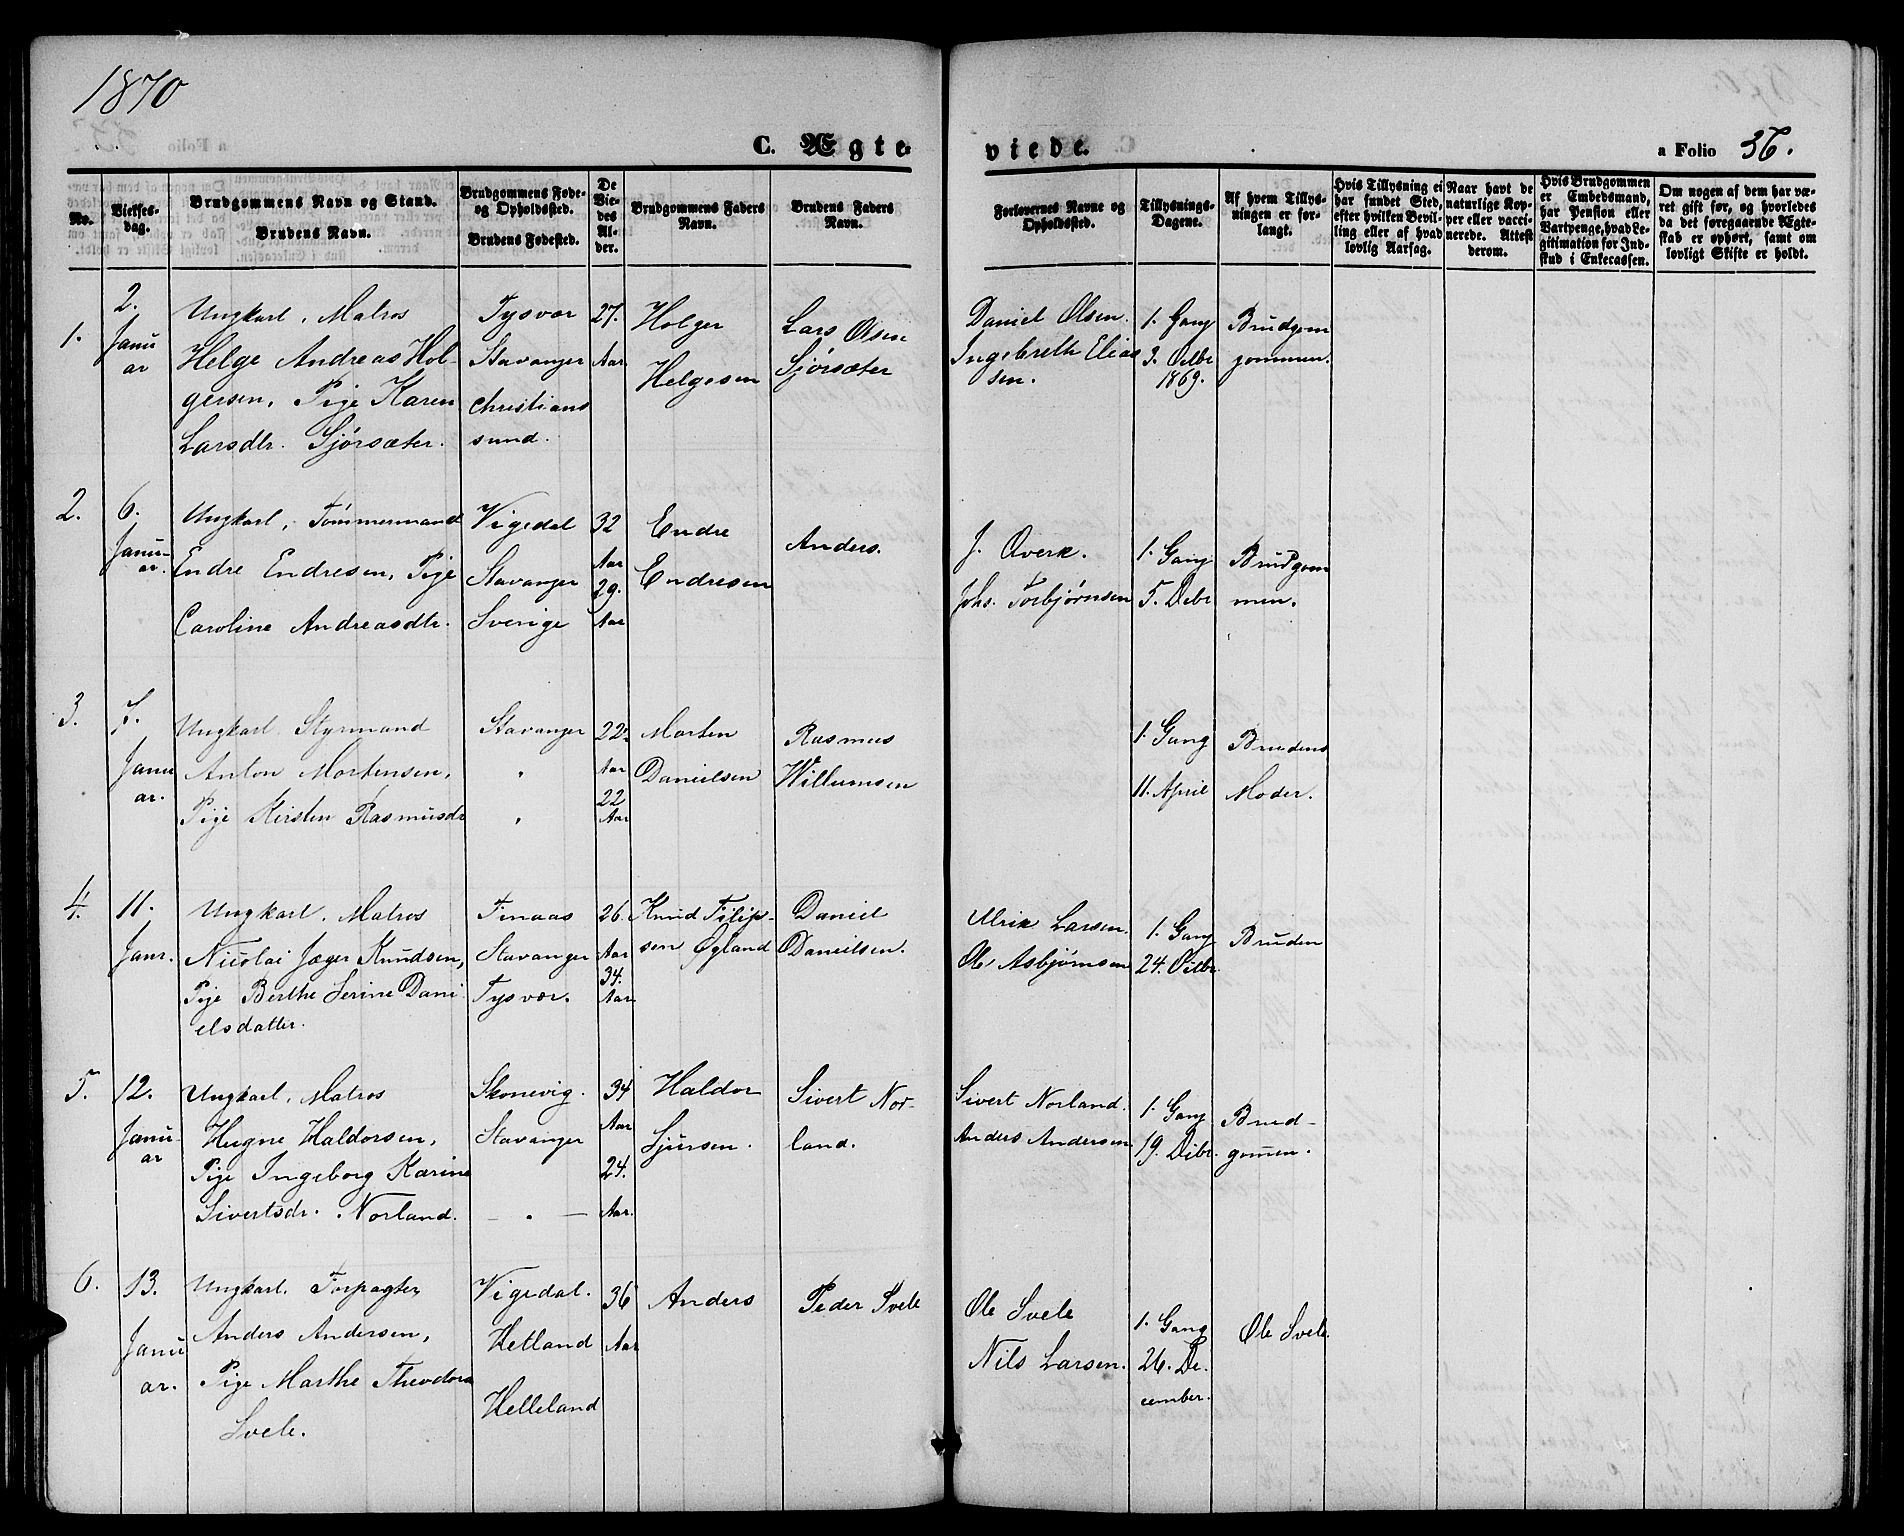 1870
C. Ægte-
viede.
a Folio 36.
No.
Vielses-
dag.
Brudgommens Navn og Stand.
Brudens Navn.
Brudgommens Føde-
og Opholdssted.
Brudens Fødested.
De
Vie-
des
Al-
der.
Brudgommens Faders
Navn.
Brudens Faders
Navn.
Forlovernes Navne og
Opholdssted.
Tillysnings-
Dagene.
Af hvem Tillys-
ningen er for-
langt.
Hvis Tillysning ei
har fundet Sted,
efter hvilken Bevil-
ling eller af hvad
lovlig Aarsag.
Naar havt de
naturlige Kop-
per eller vacci-
nerede. Attest
derom.
Hvis Brudgommen
er Embedsmand,
har Pension eller
Vartpenge, hvad Le-
gitimation for Ind-
skud i Enkecassen.
Om nogen af dem har væ-
ret gift før, og hvorledes
da det foregaaende Ægte-
skab er ophørt, samt om
lovligt Skifte er holdt.
1.
2.
Janu
ar
Ungkarl, Matros
Helge Andreas Hol-
gersen, Pige Karen
Larsdtr. Sjørsæter.
Tysvær
Stavanger
Christians
sund.
27.
Aar
Holger
Helgesen
Lars Olsen
Sjørsæter
Daniel Olsen.
Ingebreth Elias
sen.
1. Gang
3. Octbr
1869.
Brudgom
gommen.
2.
6.
Janu-
ar.
Ungkarl, Tømmermand
Endre Endresen, Pige
Caroline Andreasdtr.
Vigedal
Stavanger
Sverige
32
Aar
29.
Aar
Endre
Endresen
Anders.
J. Qverk.
Johs. Torbjørnsen
1. Gang
5. Debr
Brudgom
men.
3.
7.
Janu
ar.
Ungkarl Styrmand
Anton Mortensen,
Pige Kirsten Rasmusdr
Stavanger
"
"
22.
Aar
22
Aar
Morten
Danielsen
Rasmus
Willumsen
1. Gang
11. April
Brudens
Moder.
4.
11.
Janr.
Ungkarl. Matros
Nicolai Jæger Knudsen,
Pige Berthe Serine Dani
elsdatter.
Finaas
Stavanger
Tysvær.
26.
Aar
34.
Aar
Knud Filip-
sen Øgland
Daniel
Danielsen.
Ulrik Larsen.
Ole Asbjørnsen
1. Gang
24. Octbr.
Bruden
5.
12.
Janu-
ar
Ungkarl, Matros
Hugne Haldorsen,
Pige Ingeborg Karine
Sivertsdr. Norland.
Skonevig.
Stavanger
— " —
34
Aar
24.
Aar.
Haldor
Sjursen.
Sivert Nor-
land.
Sivert Norland.
Anders Andersen
1. Gang
19. Debr.
Brud-
gommen.
6.
13.
Janu
ar.
Ungkarl. Forpagter
Anders Andersen,
Pige Marthe Theodora
Svele.
Vigedal.
Hetland
Helleland
36
Aar
Anders
Peder Svele
Ole Svele
Nils Larsen.
1. Gang
26. De-
cember.
Ole Svele.